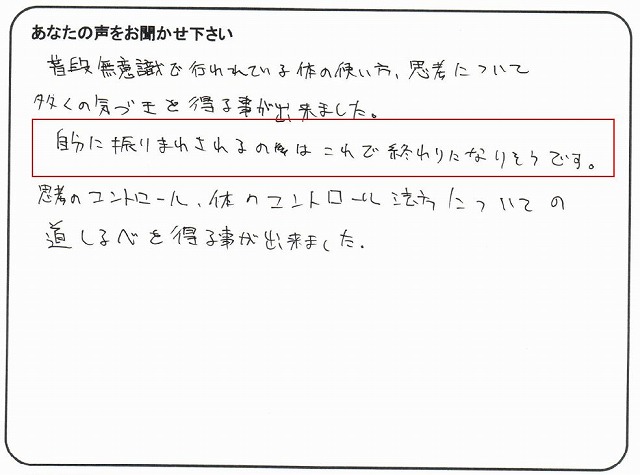 あなたの声をお聞かせ下さい
普段無意識で行われている体の使い方、思考について
多くの気づきを得る事が出来ました。
自分に振りまわされるの は これで終わりになりそうです。
思考のコントロール、体のコントロール法方についての
道しるべを得る事が出来ました.